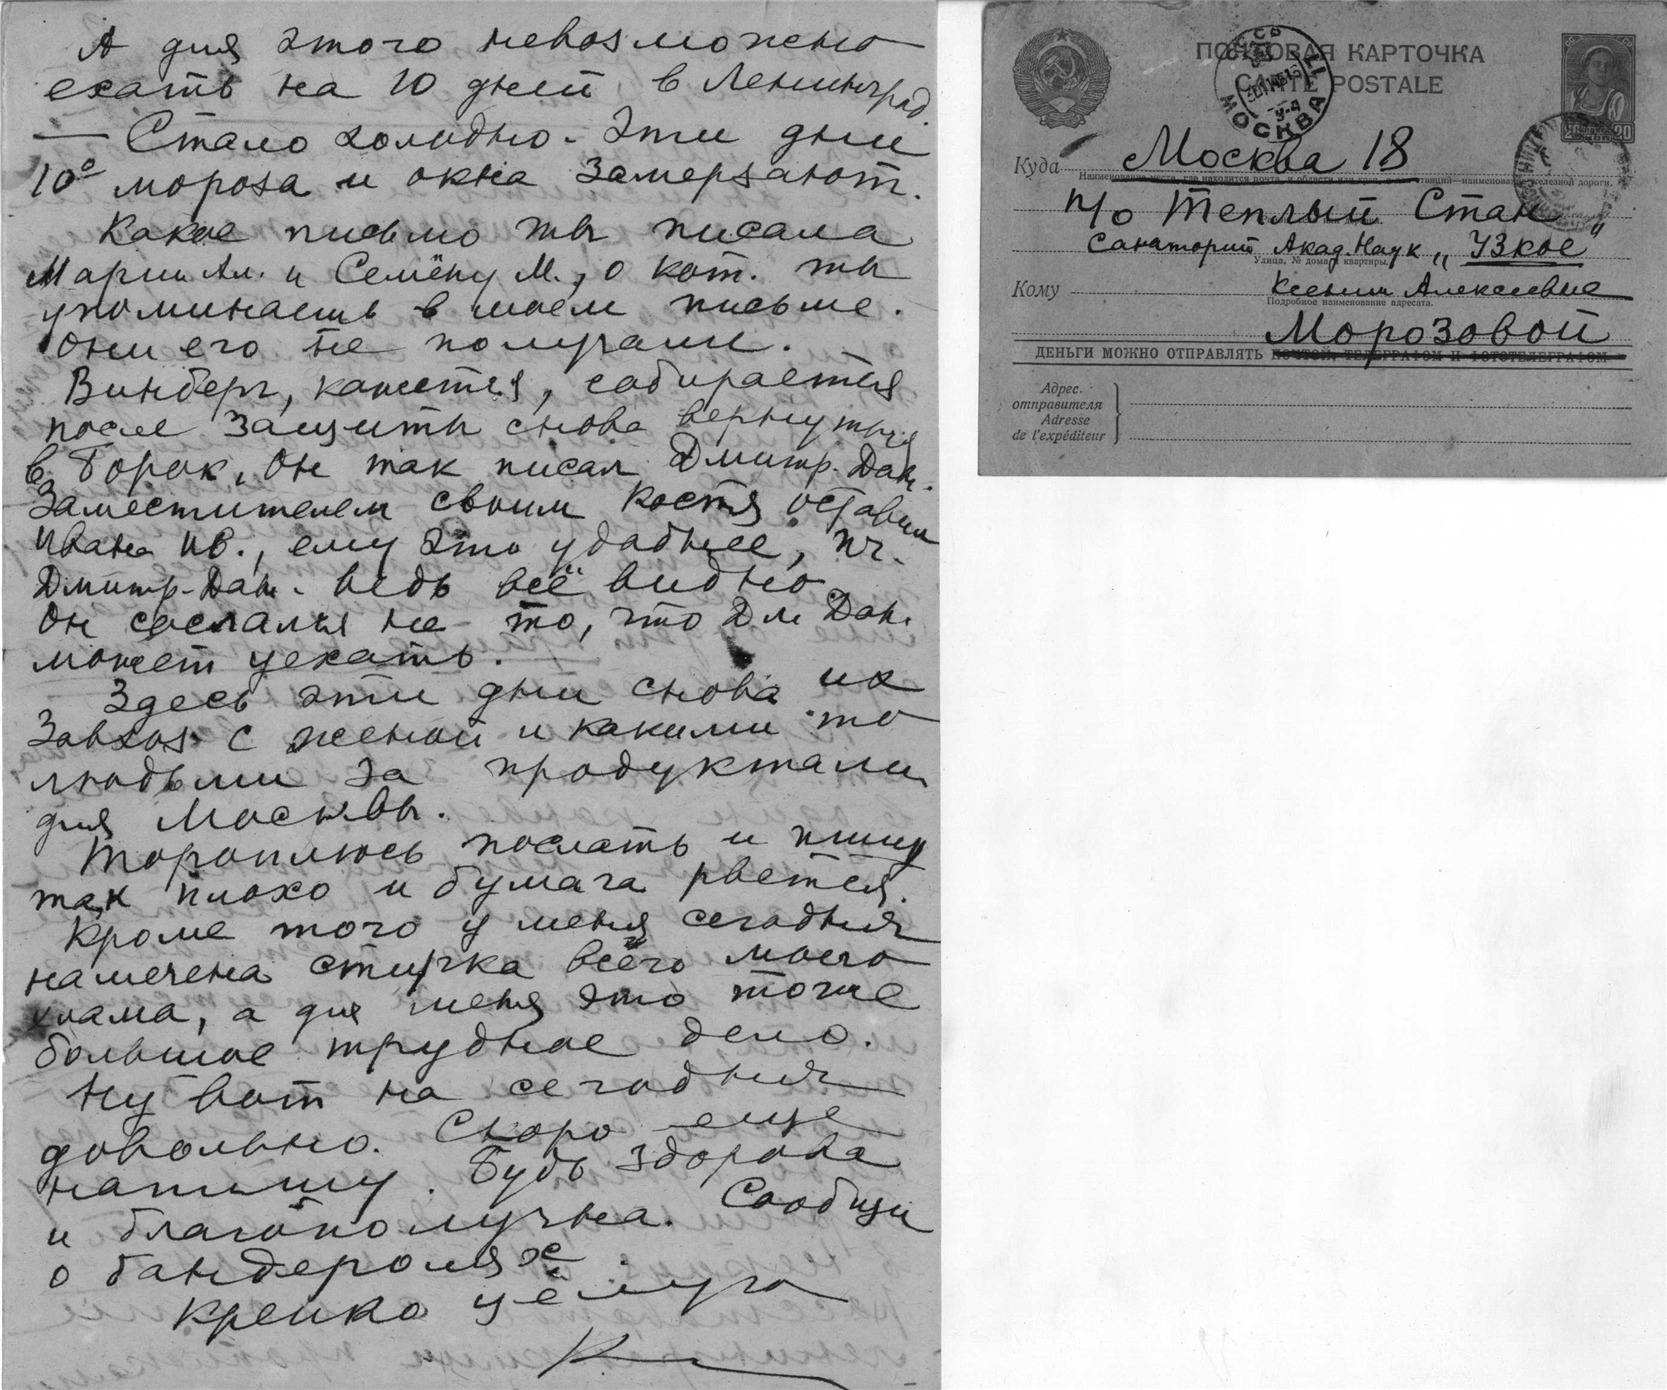 А для этого невозможно
ехать на 10 дней в Ленинград.
— Стало холодно. Эти дни
10° мороза и окна замерзают.
Какое письмо ты писала
Марии Ал. и Семёну М., о кот. ты
упоминаешь в моем письме.
Они его не получали.
Винберг, кажется, собирается
после защиты снова вернуться
в Борок. Он так писал Дмитр. Дан.
Заместителем своим Костя оставил
Ивана Ив., ему это удобнее, пч.
Дмитр. Дан. ведь всё видно.
Он сослался на то, что Дм Дан.
может уехать.
Здесь эти дни снова их
Завхоз с женой и какими то
людьми за продуктами
для Москвы.
Тороплюсь послать и пишу
так плохо и бумага рвется.
Кроме того у меня сегодня
намечена стирка всего моего
хлама, а для меня это тоже
большое трудное дело.
Ну вот на сегодня
довольно. Скоро еще
напишу. Будь здорова
и благополучна. Сообщи
о бандеролях.
Крепко целую
К
ПОЧТОВАЯ КАРТОЧКА
CARTE POSTALE
МОСКВА
20 20
Куда Москва 18
п/о Теплый Стан
Санаторий Акад. Наук „Узкое"
Улица, № дома и квартиры.
Кому Ксении Алексеевне
Подробное наименование адресата.
Морозовой
ДЕНЬГИ МОЖНО ОТПРАВЛЯТЬ ПОЧТОЙ, ТЕЛЕГРАФОМ И ФОТОТЕЛЕГРАФОМ
Адрес.
отправителя
Adresse
de l'expéditeur